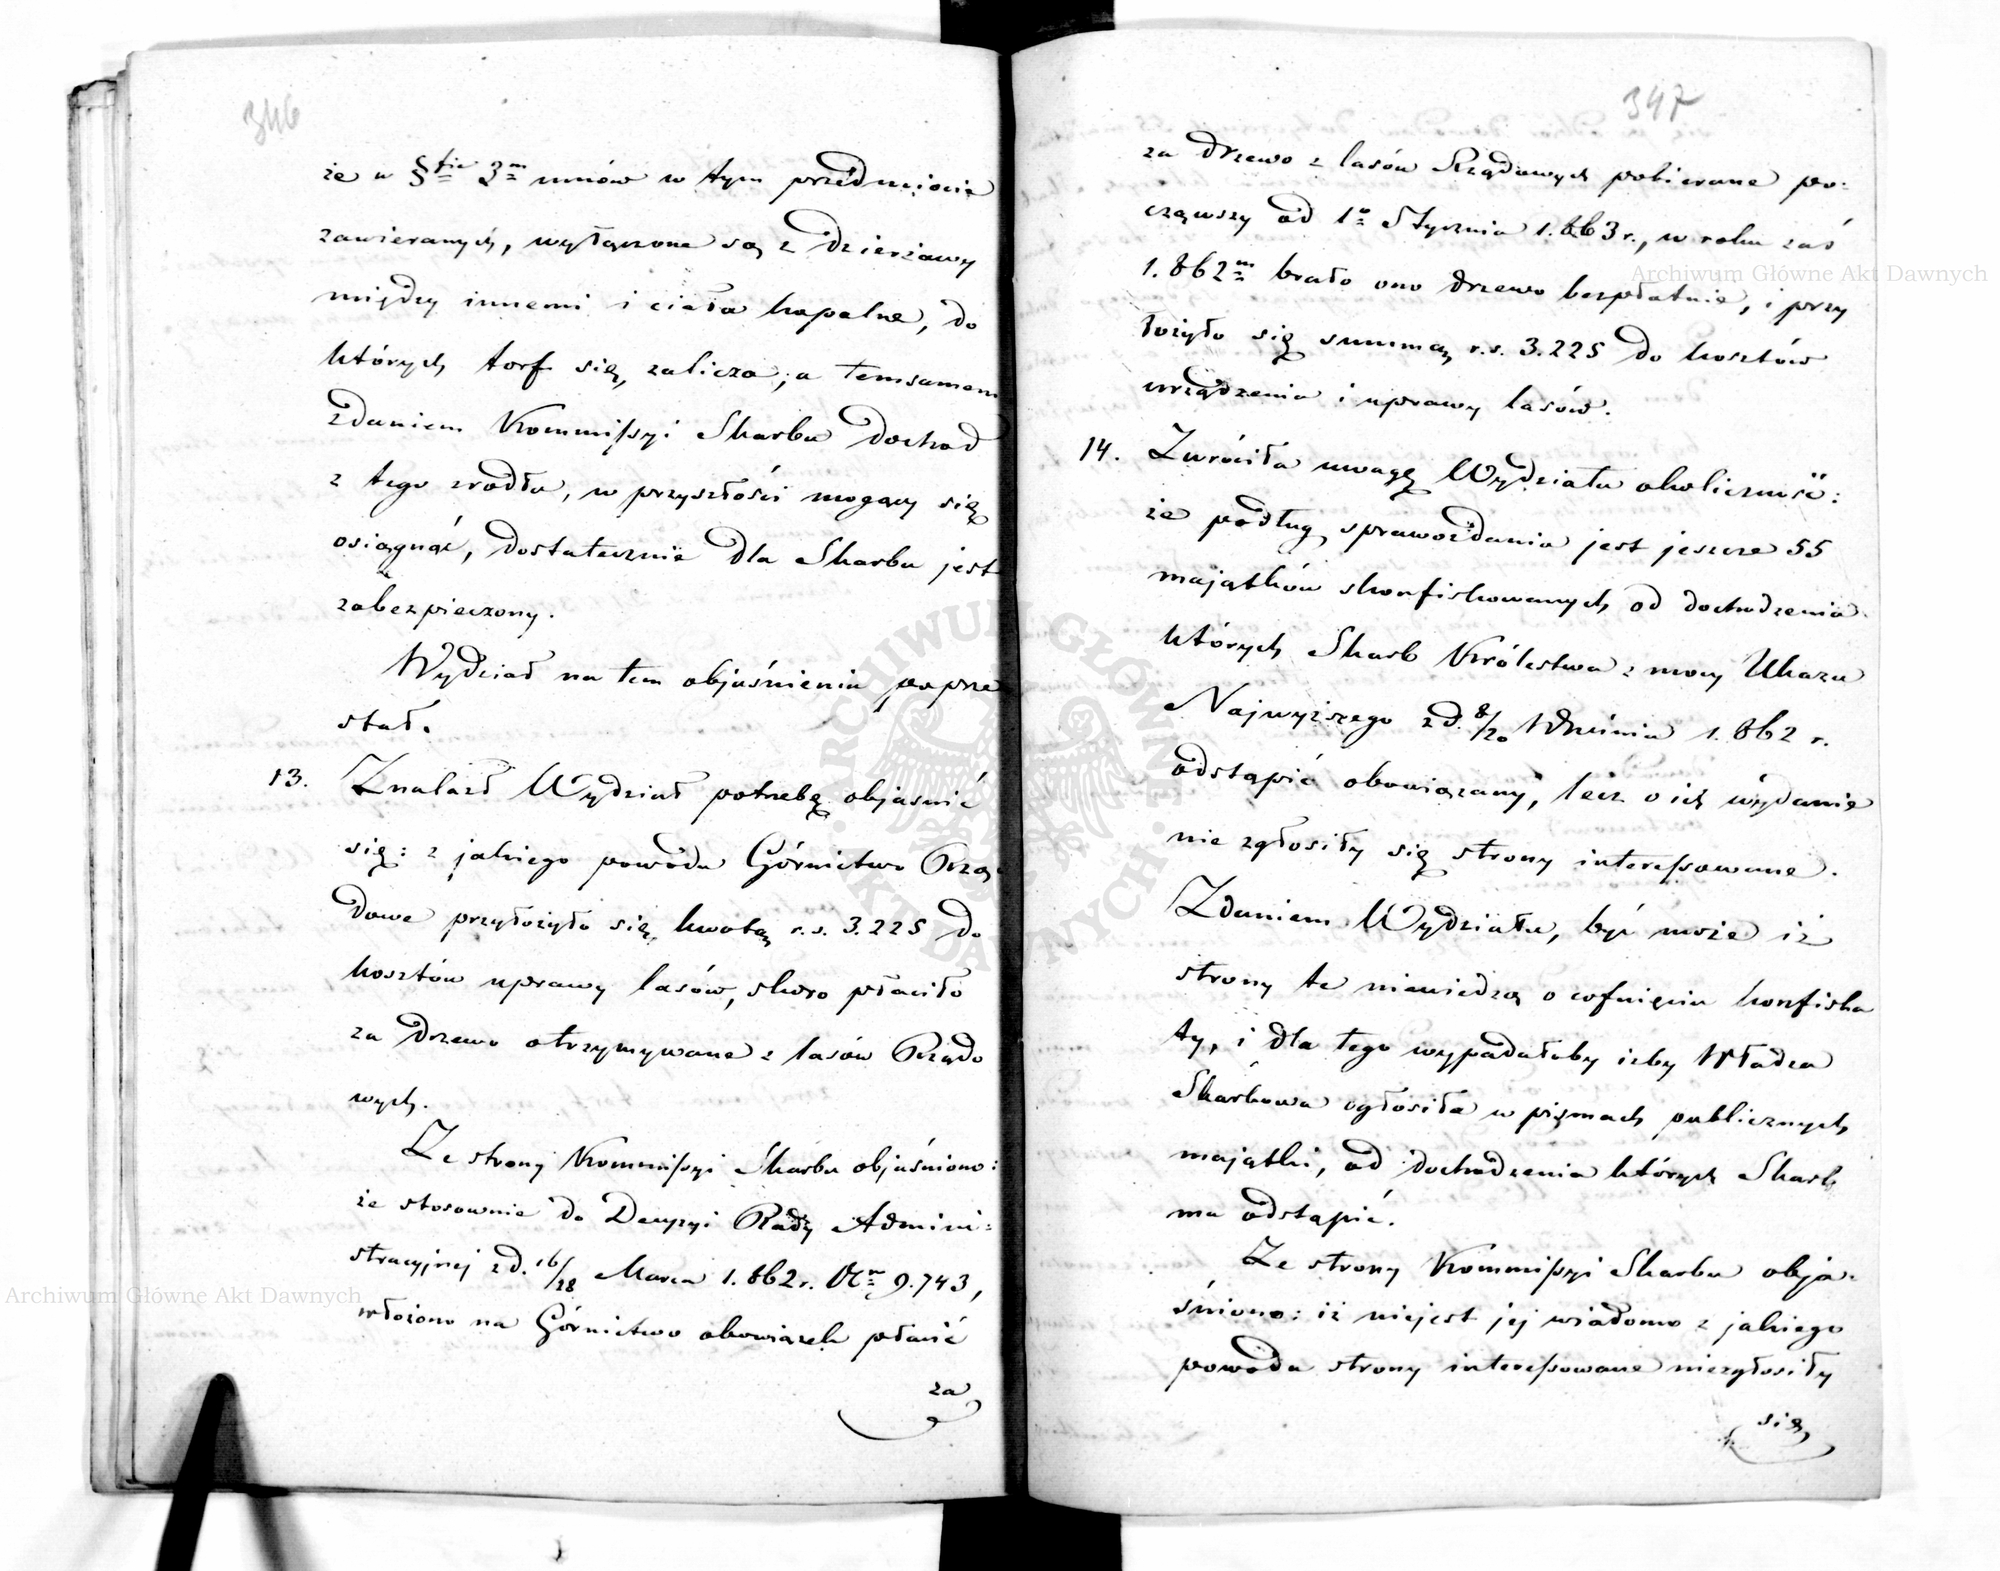 346
że w §fie 3m umów w tym przedmiocie
zawieranych, wyłączone są z dzierżawy
między innemi i ciała kopalne, do
których torf się zalicza; a temsamem
zdaniem Kommissyi Skarbu dochod
z tego źrodła, w przyszłości mogący się
osiągnąć, dostatecznie dla Skarbu jest
zabezpieczony.
Wydział na tem objaśnieniu poprze
stał.
13. Znalazł Wydział potrzebę objasnić
się: z jakiego powodu Górnictwo Rzą
dowe przyłożyło się kwotą r.s. 3.225 do
kosztów uprawy lasów, skoro płaciło
za drzewo otrzymywane z lasów Rządo
wych.
Ze strony Kommissyi Skarbu objaśniono:
że stosownie do Decyzyi Rady Admini:
stracyjnej z d. 16/28 Marca 1.862 r. Nr 9.743,
włożono na Górnictwo obowiązek płacić
za
347
za drzewo z lasów Rządowych pobierane po:
cząwszy od 1o Stycznia 1.863 r., w roku zaś
1.862m brało ono drzewo bezpłatnie, i przy
łożyło się summą r.s. 3.225 do kosztów
urządzenia i uprawy lasów.
14. Zwróciła uwagę Wydziału okoliczność:
że podług sprawozdania jest jeszcze 55
majątków skonfiskowanych, od dochodzenia
których Skarb Królestwa z mocy Ukazu
Najwyższego z d. 8/20 Września 1.862 r.
odstąpić obowiązany, lecz o ich wydanie
nie zgłosiły się strony interessowane.
Zdaniem Wydziału, być może iż
strony te niewiedzą o cofnięciu konfiska
ty, i dla tego wypadałoby iżby Władza
Skarbowa ogłosiła w pismach publicznych
majątki, od dochodzenia których Skarb
ma odstąpić.
Ze strony Kommissyi Skarbu obja:
śniono: iż niejest jej wiadomo z jakiego
powodu strony interessowane niezgłosiły
się
Archiwum Główne Akt Dawnych
Archiwum Główne Akt Dawnych
ARCHIWUM GŁÓWNE AKT DAWNYCH